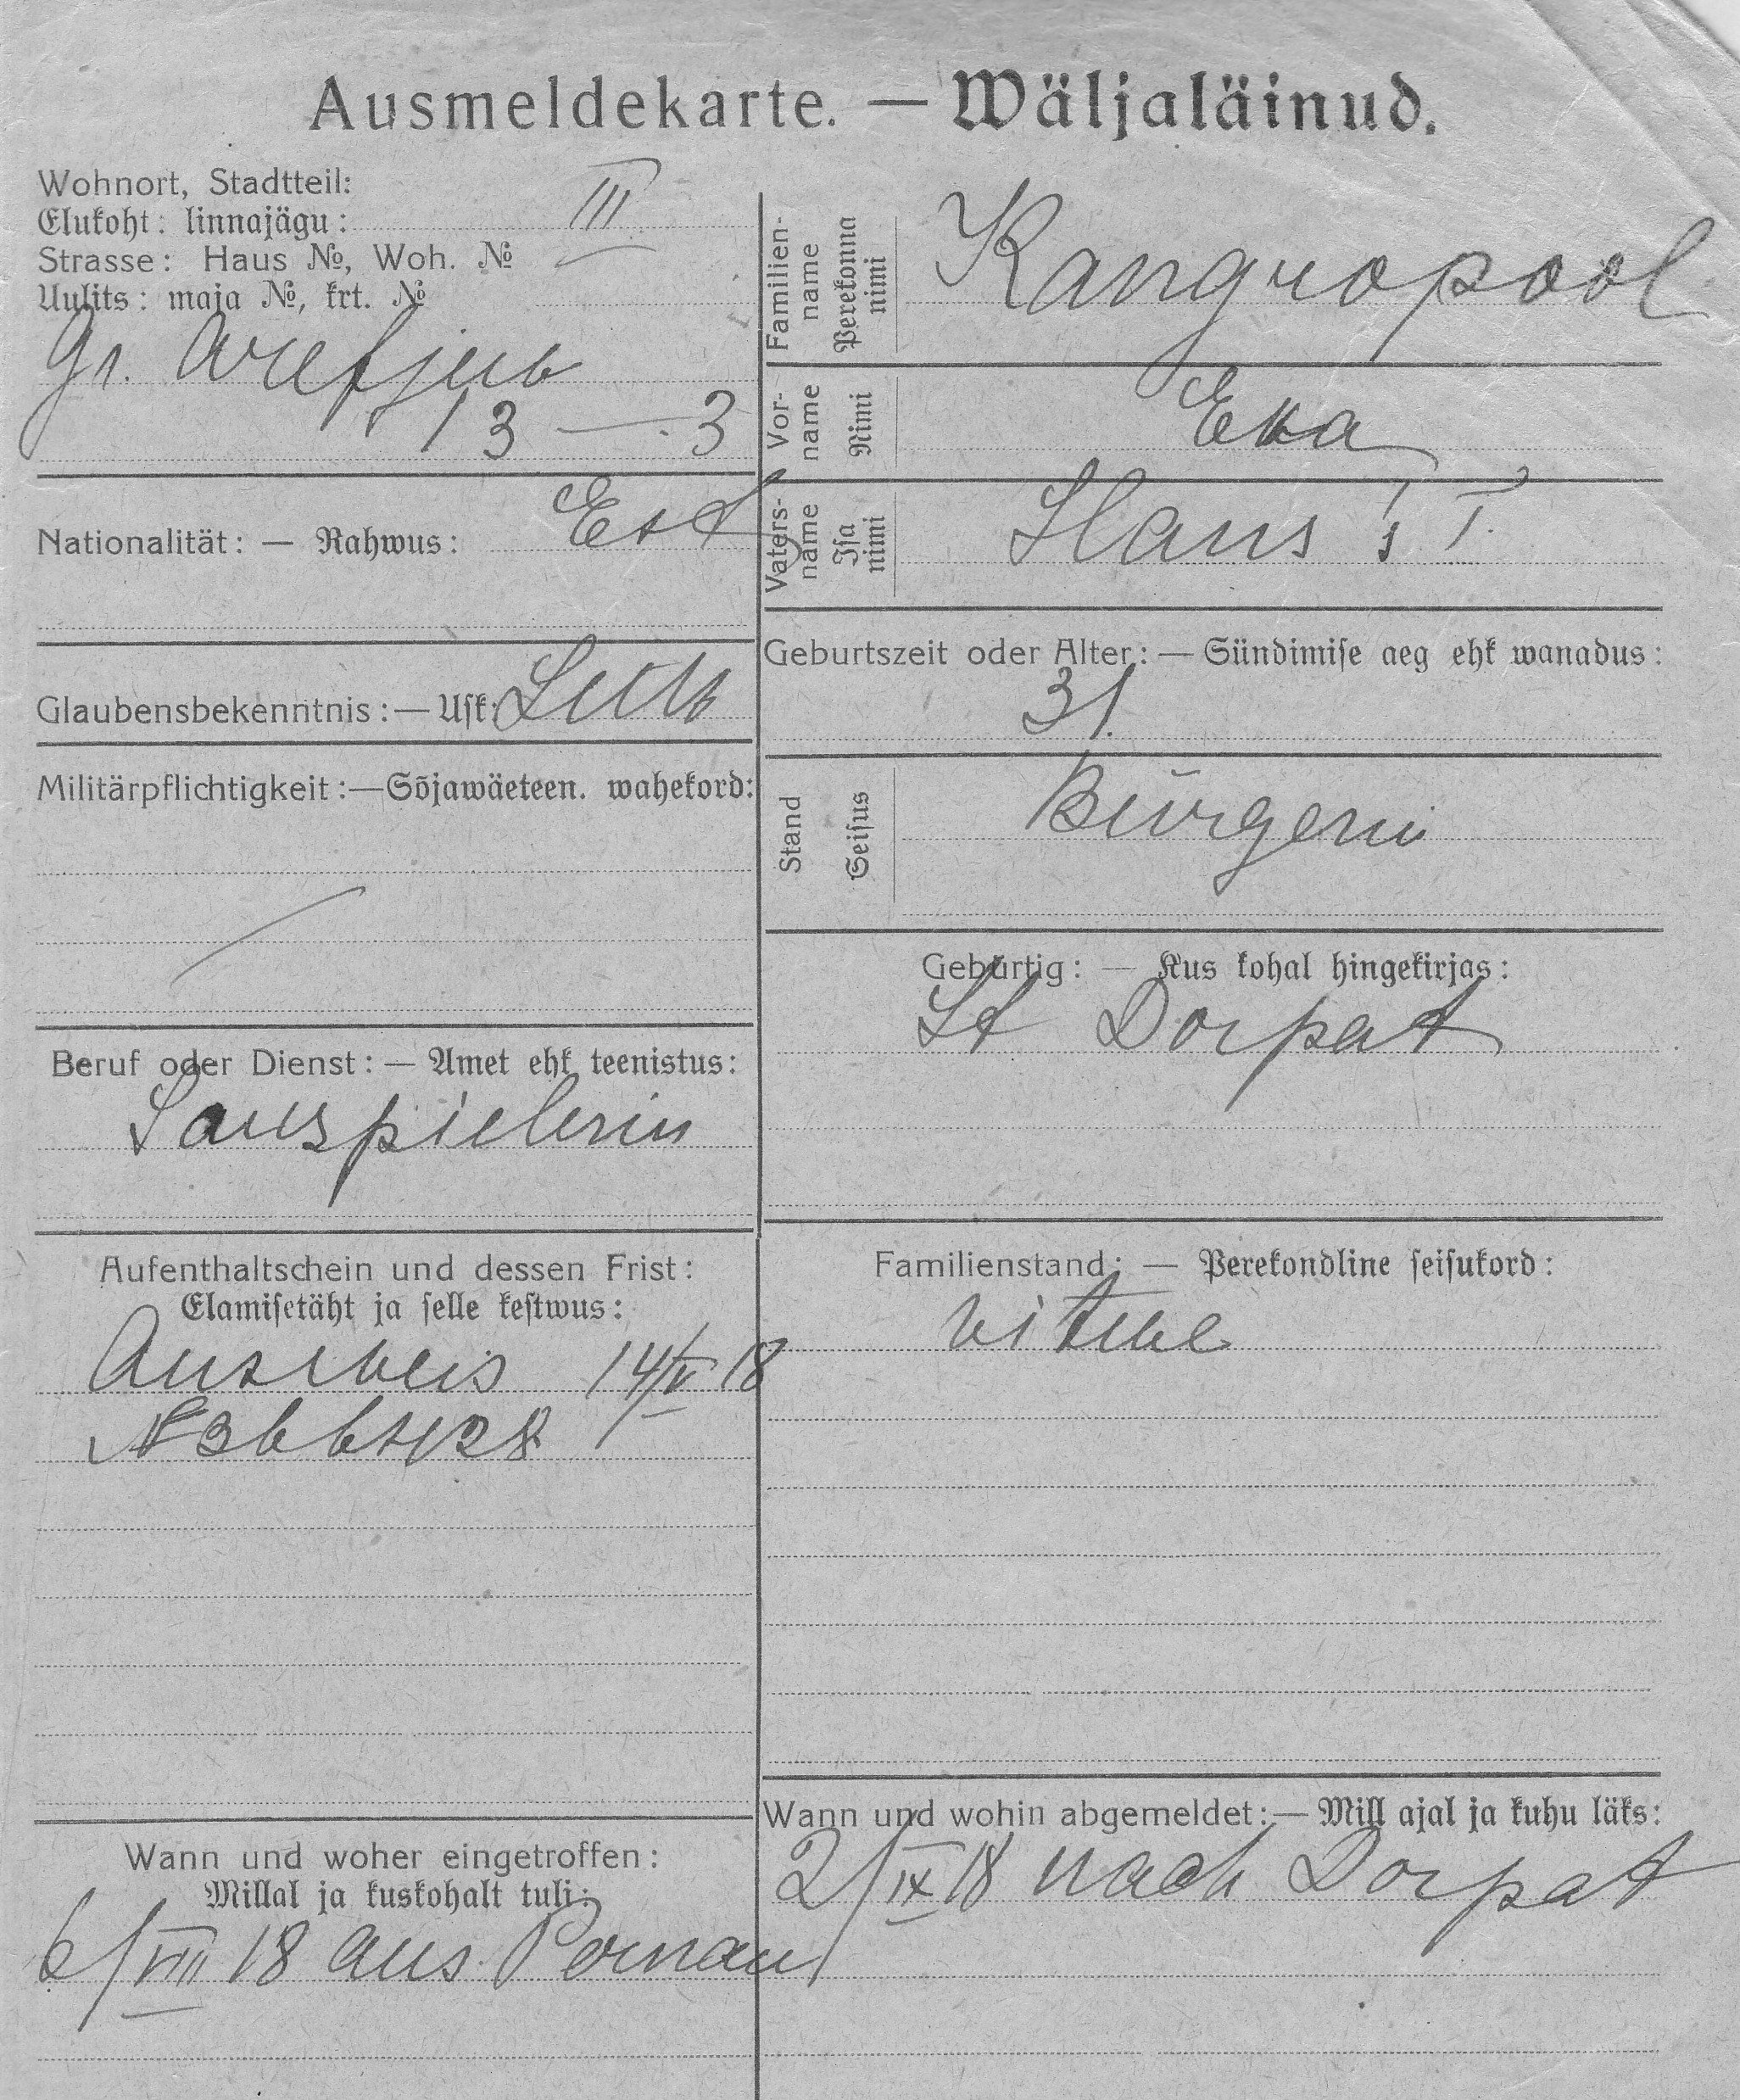 Ausmeldekarte. — Wäljaläinud.
Wohnort, Stadtteil:
Elukoht: linnajägu: III
Strasse: Haus №, Woh. №
Uulits: maja №, krt. №
Gr.
13 — 3
Familien-name
Perekonna nimi
Kangropool
Vor-name
Nimi
Eva
Vaters-name
Isa nimi
Hans's T.
Nationalität: — Rahwus: Est
Glaubensbekenntnis: — Usk: Luth
Geburtszeit oder Alter: — Sündimise aeg ehk wanadus:
31.
Militärpflichtigkeit: — Sõjawäeteen. wahekord:
Stand
Seisus
Bürgerin
Gebürtig: — Kus kohal hingekirjas:
St Dorpat
Beruf oder Dienst: — Amet ehk teenistus:
Sauspielerin
Aufenthaltschein und dessen Frist:
Elamisetäht ja selle kestwus:
Ausweis 14/V 18
Familienstand: — Perekondline seisukord:
Wann und woher eingetroffen:
Millal ja kuskohalt tuli:
6/VIII 18 aus Pernau
Wann und wohin abgemeldet: — Mill ajal ja kuhu läks:
2/IX 18 nach Dorpat